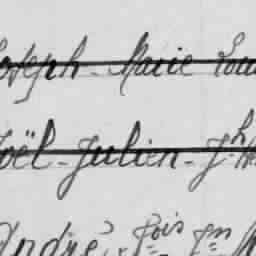 Joseph - Marie Lou
Joël - Julien - J.h M
André - fois Jn